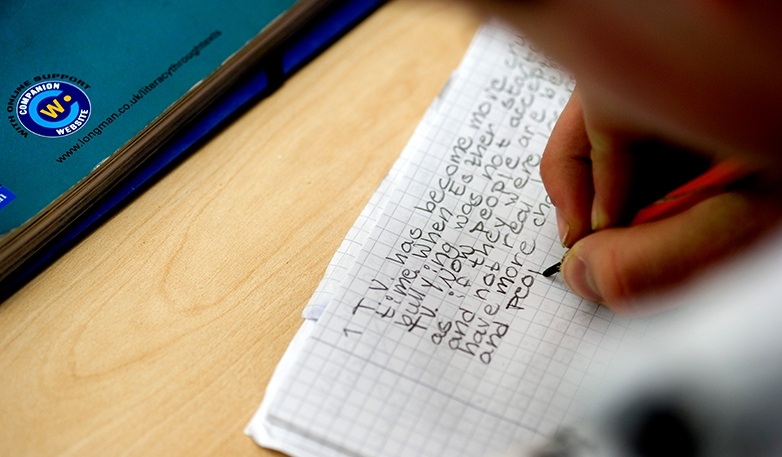 WITH ONLINE SUPPORT
COMPANION
W.
WEBSITE
www.longman.co.uk/literacythroughtexts
1 T.V. has become more
time. When Esther
bullying was not accep
TV. Now people are be
as if they were
and not real
have more cha
and peo